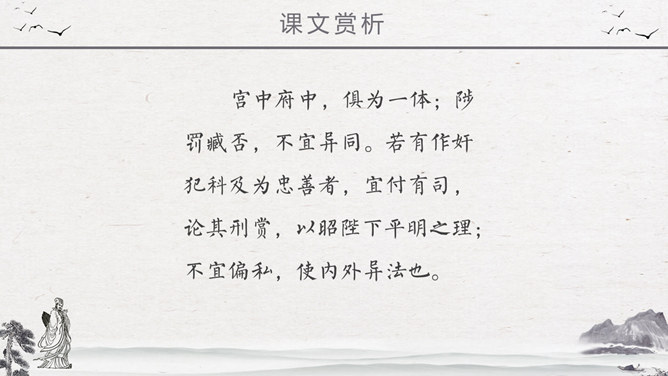 课文赏析
宫中府中，俱为一体；陟
罚臧否，不宜异同。若有作奸
犯科及为忠善者，宜付有司，
论其刑赏，以昭陛下平明之理；
不宜偏私，使内外异法也。